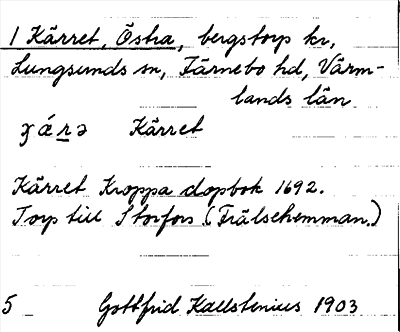 1 Kärret, Östra, bergstorp kr,
Lungsunds sn, Färnebo hd, Värm-
lands län
Kärret
Kärret Kroppa dopbok 1692.
Torp till Storfors (Frälsehemman.)
5 Gottfrid Kallstenius 1903